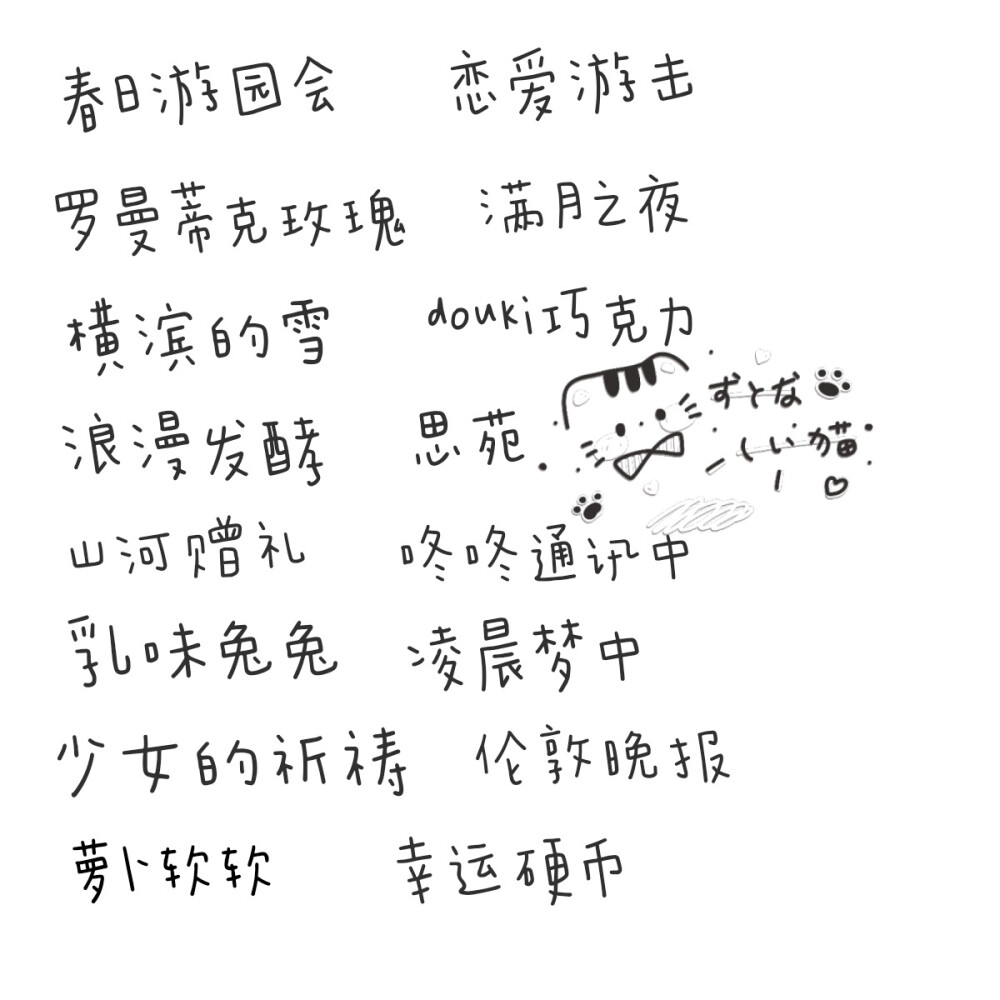 春日游园会 恋爱游击
罗曼蒂克玫瑰 满月之夜
横滨的雪 douki巧克力
ずとな
浪漫发酵 思苑
しい猫
山河赠礼 咚咚通讯中
乳味兔兔 凌晨梦中
少女的祈祷 伦敦晚报
萝卜软软 幸运硬币